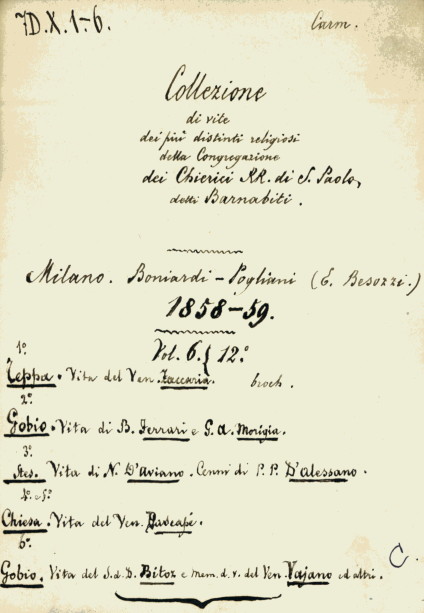 7D.X.1-6.
Carm.
Collezione
di vite
dei più distinti religiosi
della Congregazione
dei Chierici RR. di S. Paolo,
detti Barnabiti.
Milano. Boniardi-Pogliani (E. Besozzi.)
1858-59.
Vol. 6. } 12.°
1.°
Teppa. Vita del Ven. Zaccaria. broch.
2.°
Gobio. Vita di B. Ferrari e G. A. Morigia.
3.°
Vita di N. D'aviano. Cenni di P. P. D'alessano.
4.° e 5.°
Chiesa. Vita del Ven. Bascapé.
6.°
Gobio. Vita del S. d. D. Bitoz e mem. d. v. del Ven. Vajano ed altri.
C